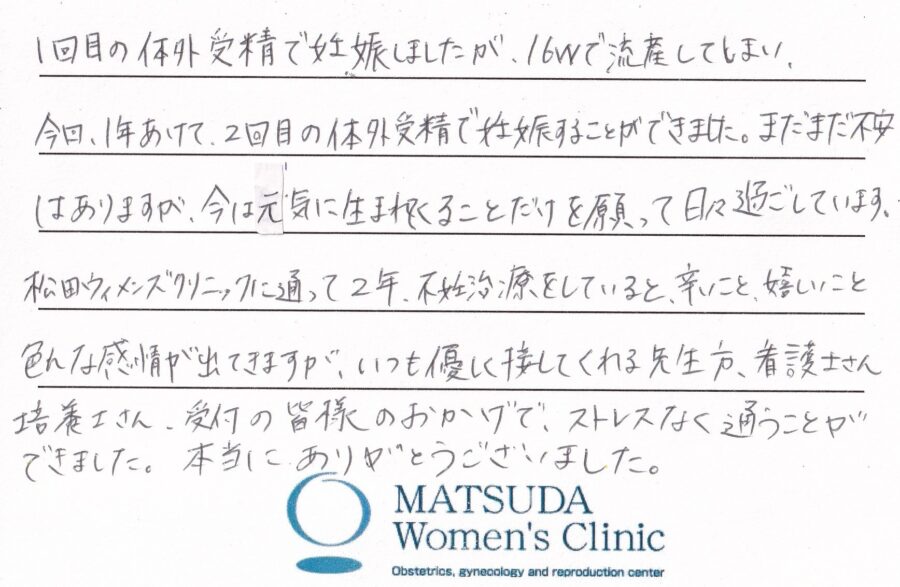 1回目の体外受精で妊娠しましたが、16wで流産してしまい、
今回、1年あけて、2回目の体外受精で妊娠することができました。まだまだ不安
はありますが、今は元気に生まれてくることだけを願って日々過ごしています。
松田ウィメンズクリニックに通って2年、不妊治療をしていると、辛いこと、嬉しいこと
色んな感情が出てきますが、いつも優しく接してくれる先生方、看護士さん
培養士さん、受付の皆様のおかげで、ストレスなく通うことが
できました。本当にありがとうございました。
MATSUDA
Women's Clinic
Obstetrics, gynecology and reproduction center